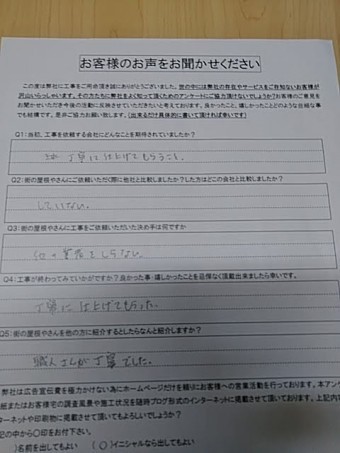 お客様のお声をお聞かせください
この度は弊社に工事をご用命頂き誠にありがとうございました。世の中には弊社の存在やサービスをご存知ないお客様が
沢山いらっしゃいます。その方たちに弊社をよく知って頂くためのアンケートにご協力頂けないでしょうか?お客様のご意見を
お聞かせいただき今後の活動に反映させていただきたいと考えております。良かったこと、嬉しかったことどのような些細な事
でも結構です。是非ご協力お願い致します。(出来るだけ具体的に書いて頂ければ幸いです)
Q1:当初、工事を依頼する会社にどんなことを期待されていましたか?
丁寧に仕上げてもらうこと。
Q2:街の屋根やさんにご依頼いただく際に他社と比較しましたか?した方はどこの会社と比較しましたか?
していない。
Q3:街の屋根やさんに工事をご依頼いただいた決め手は何ですか
他の業者をしらない。
Q4:工事が終わってみていかがですか?良かった事・嬉しかったことを忌憚なく頂戴出来ましたら幸いです。
丁寧に仕上げてもらった。
Q5:街の屋根やさんを他の方に紹介するとしたらなんと紹介しますか?
職人さんが丁寧でした。
弊社は広告宣伝費を極力かけない為にホームページだけを頼りにお客様への営業活動を行っております。本アン
紙またはお客様宅の調査風景や施工状況を随時ブログ形式のインターネットに掲載させて頂いております。上記内
ターネットや印刷物に掲載させて頂いてもよろしいでしょうか?
記の中から〇印をお付下さい。
)名前を出してもよい (〇)イニシャルなら出してもよい